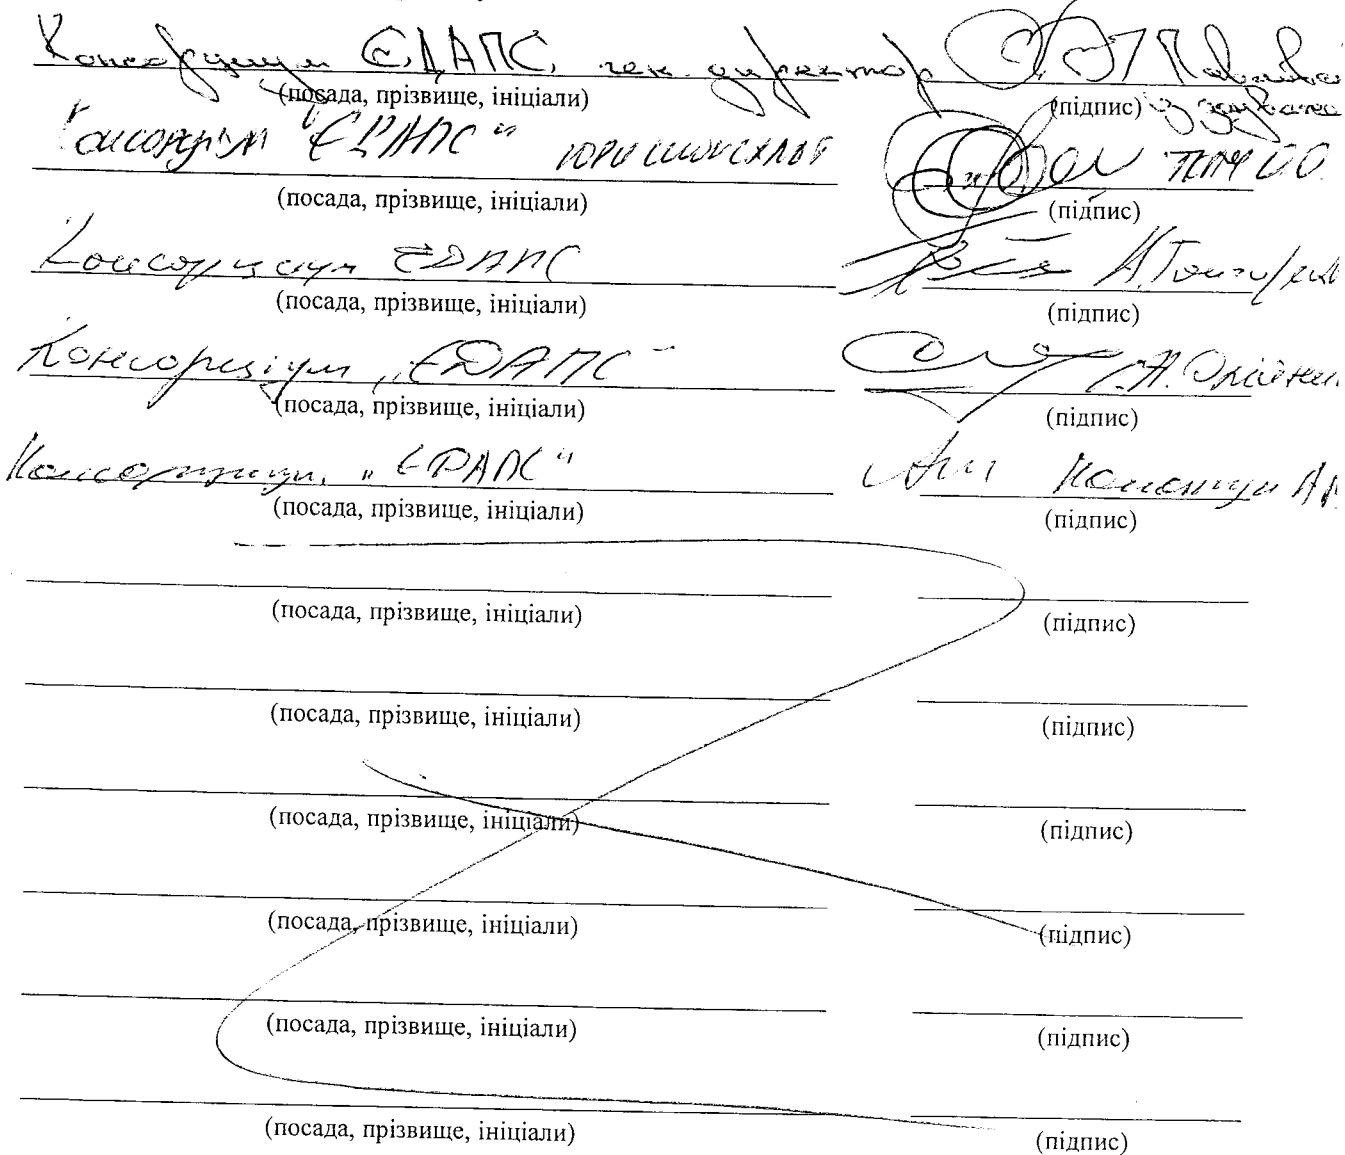 Консорциум ЄДАПС, ген. директор
(посада, прізвище, ініціали) (підпис)
Консорціум "ЄДАПС" юрисконсульт
(посада, прізвище, ініціали) (підпис)
Консорциум ЄДАПС
(посада, прізвище, ініціали) (підпис)
Консорціум „ЄДАПС"
(посада, прізвище, ініціали) (підпис)
Консорциум „ЄДАПС"
(посада, прізвище, ініціали) (підпис)
(посада, прізвище, ініціали) (підпис)
(посада, прізвище, ініціали) (підпис)
(посада, прізвище, ініціали) (підпис)
(посада, прізвище, ініціали) (підпис)
(посада, прізвище, ініціали) (підпис)
(посада, прізвище, ініціали) (підпис)